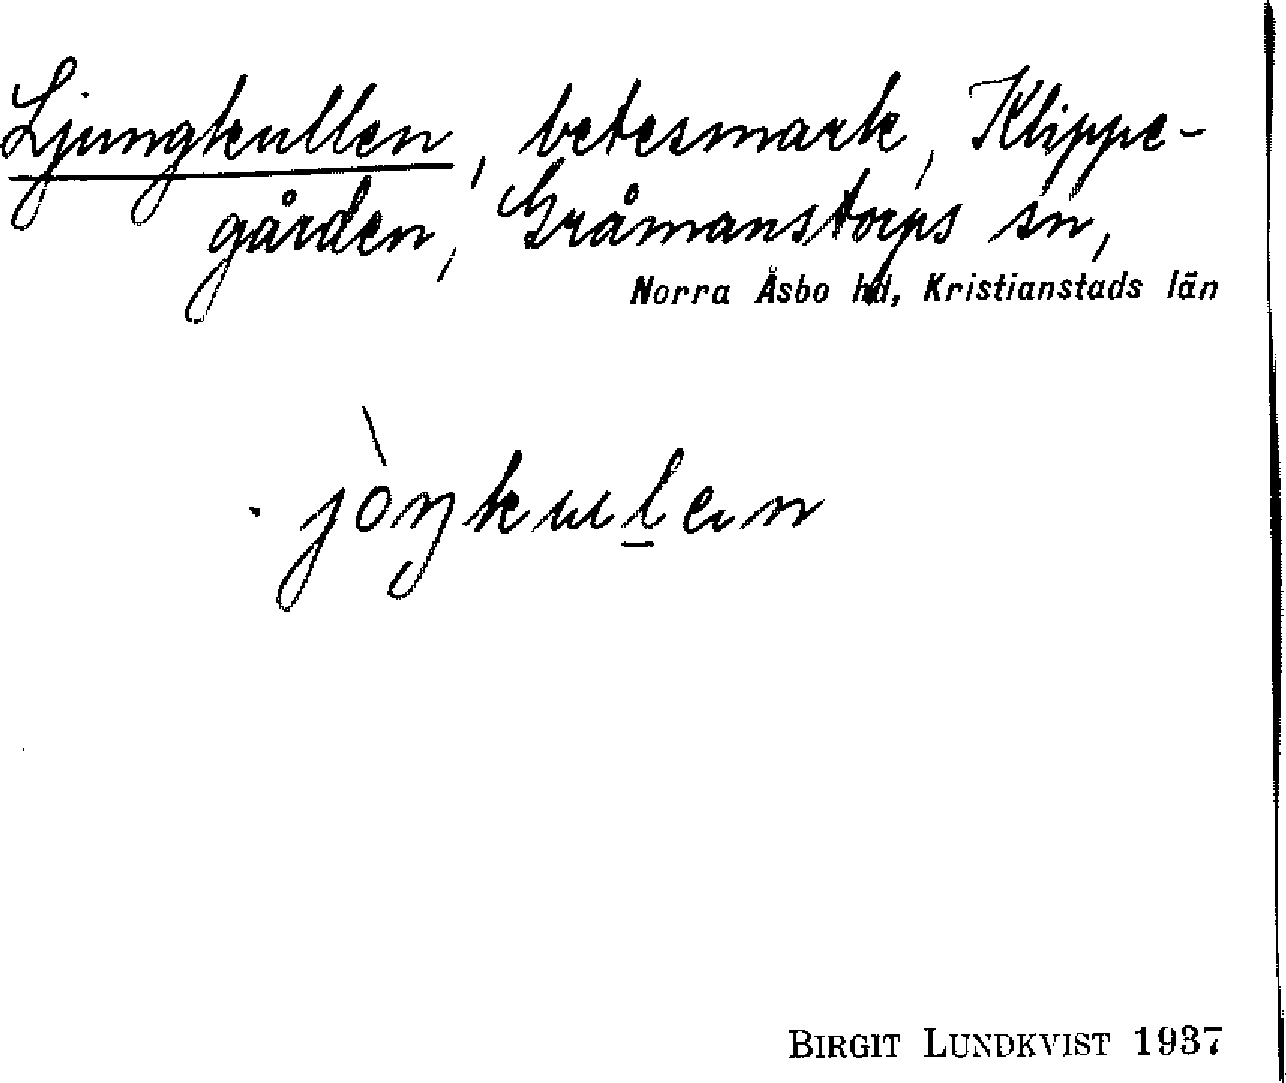 Ljungkullen, betesmark, Klippe-
gården, Gråmanstorps sn,
Norra Åsbo hd, Kristianstads län
jòŋkulen
BIRGIT LUNDKVIST 1937